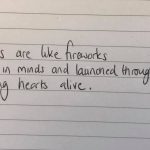 s are like fireworks
in minds and launched throug
g hearts alive.